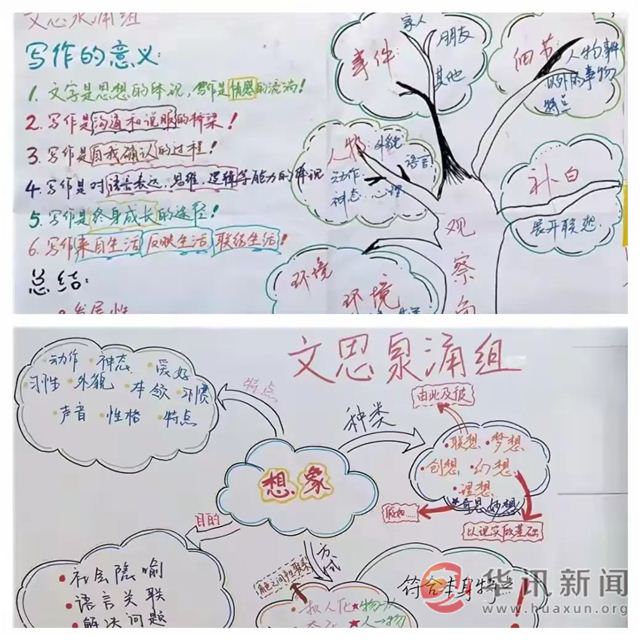 文思泉涌组
写作的意义:
1. 文字是思想的体现,写作是情感的流淌!
2. 写作是沟通和说服的桥梁!
3. 写作是自我确认的过程!
4. 写作是对语言表达、思维、逻辑等能力的体现
5. 写作是终身成长的途径!
6. 写作来自生活 反映生活 联结生活!
总结:
事件:
家人
朋友
其他
细节:
人物事件
以外的事物
特点
人物:
外貌
语言
动作
神态
心理
补白
展开联想
环境
环境
观察角
文思泉涌组
动作 神态 爱好
习性 外貌 本领 习惯
声音 性格 特点
特点
种类
由此及彼
联想 梦想
创想 幻想
理想
奇思妙想
以现实为基础
想象
目的
方式
社会隐喻
语言关联
解决问题
拟人化
符合本身特点
华讯新闻
www.huaxun.org